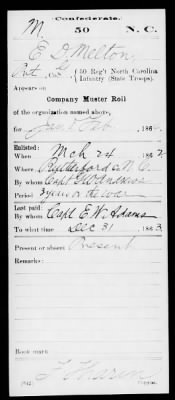 Confederate.
M. 50 N. C.
E. D. Melton,
Pvt, Co. { 50 Reg't North Carolina
Infantry (State Troops).
Appears on
Company Muster Roll
of the organization named above,
for Jan & Feb, 186
Enlisted:
When Mch 24, 1862
Where Rutherford N. C.
By whom Capt.
Period 3 years or the war
Last paid:
By whom Capt. E. W. Adams
To what time Dec 31, 1863
Present or absent Present
Remarks:
Book mark:
(642) Copyist.